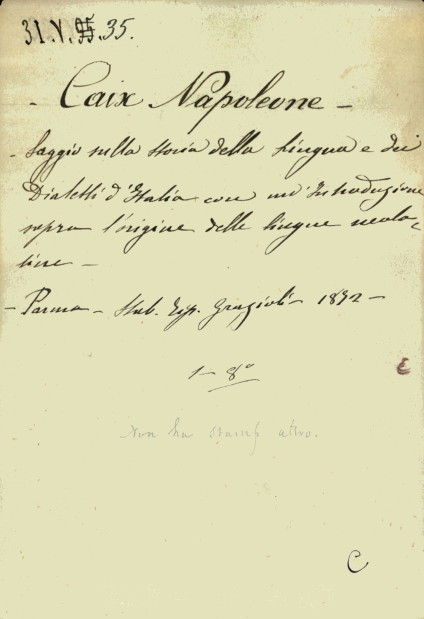 31.V.95.35.
- Caix Napoleone -
- Saggio sulla storia della lingua e dei
Dialetti d'Italia con un'Introduzione
sopra l'origine delle lingue neola-
tine -
- Parma - Stab. Tip. Grazioli - 1872 -
1 - 8°
Non ha stamp altro.
C